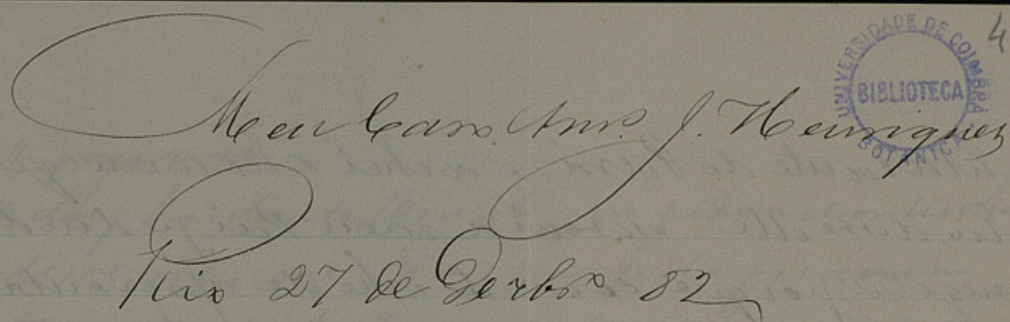 4
UNIVERSIDADE DE COIMBRA
BIBLIOTECA
BOTANICA
Meu Caro Amo. J. Henriques
Rio 27 de Dezbro 82